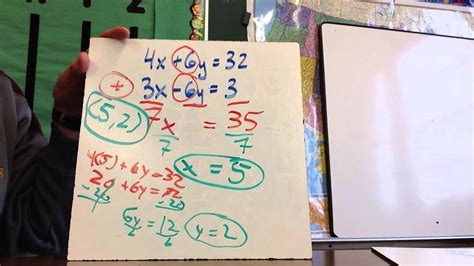 4x+6y=32
+ 3x-6y=3
7x = 35
7 7
(5,2)
x=5
4(5)+6y=32
20+6y=32
-20 -20
6y=12
6 6
y=2